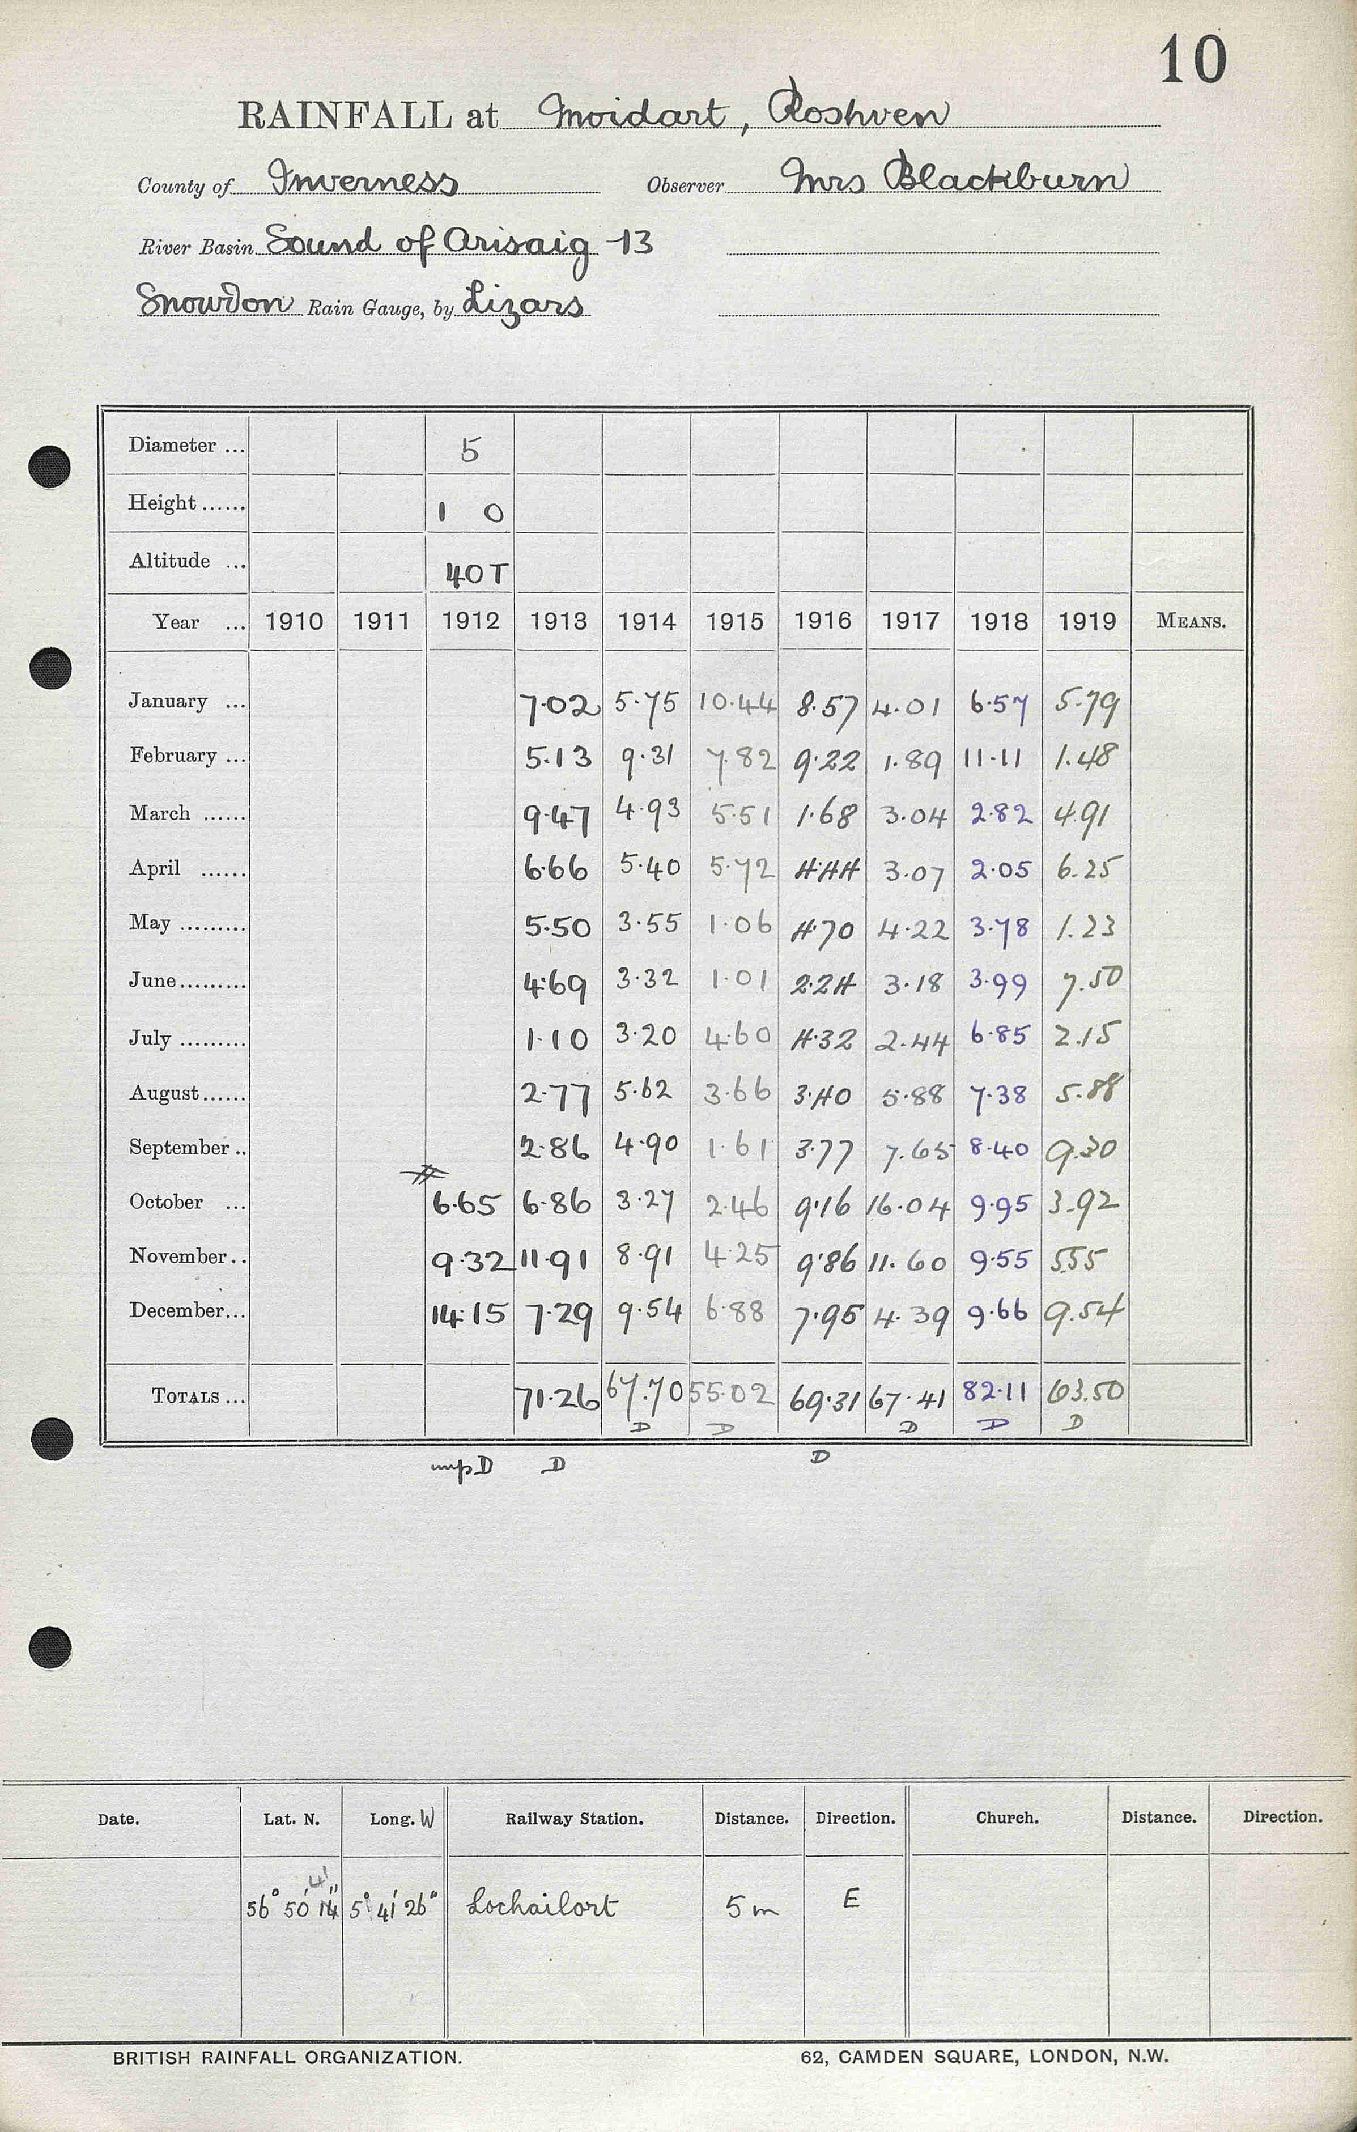 10
RAINFALL at Moidart, Roshven
County of Inverness Observer Mrs Blackburn
River Basin Sound of Arisaig -13
Snowdon Rain Gauge, by Lizars
Diameter ... 5
Height ...... 1 0
Altitude ... 40T
Year ... 1910 1911 1912 1913 1914 1915 1916 1917 1918 1919 MEANS.
January ... 7.02 5.75 10.44 8.57 4.01 6.57 5.79
February ... 5.13 9.31 7.82 9.22 1.89 11.11 1.48
March ...... 9.47 4.93 5.51 1.68 3.04 2.82 4.91
April ...... 6.66 5.40 5.72 4.44 3.07 2.05 6.25
May ......... 5.50 3.55 1.06 4.70 4.22 3.78 1.23
June......... 4.69 3.32 1.01 2.24 3.18 3.99 7.50
July ......... 1.10 3.20 4.60 4.32 2.44 6.85 2.15
August...... 2.77 5.62 3.66 3.40 5.88 7.38 5.88
September .. 2.86 4.90 1.61 3.77 7.65 8.40 9.30
October ... 6.65 6.86 3.27 2.46 9.16 16.04 9.95 3.92
November.. 9.32 11.91 8.91 4.25 9.86 11.60 9.55 5.55
December... 14.15 7.29 9.54 6.88 7.95 4.39 9.66 9.54
TOTALS ... 71.26 67.70 55.02 69.31 67.41 82.11 63.50
D D D D D
D D D
Date. Lat. N. Long. W Railway Station. Distance. Direction. Church. Distance. Direction.
56° 50' 14" 5° 41' 26" Lochailort 5 m E
BRITISH RAINFALL ORGANIZATION. 62, CAMDEN SQUARE, LONDON, N.W.